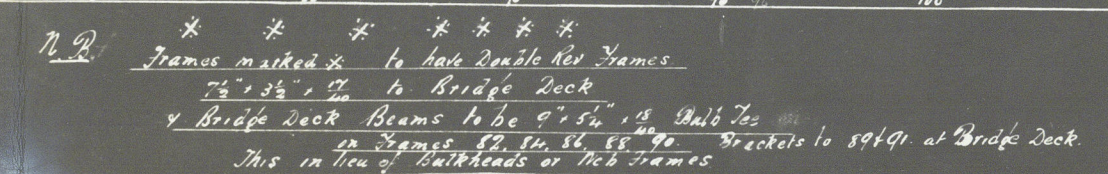 ※ ※ ※ ※ ※ ※ ※
N.B. Frames marked ※ to have Double Rev Frames
7½" + 3½" + 17/40 to Bridge Deck
& Bridge Deck Beams to be 9" + 5¼" + 18/40 Bulb Tee
on Frames 82, 84, 86, 88, 90. Brackets to 89 & 91. at Bridge Deck.
This in lieu of Bulkheads or Web Frames.